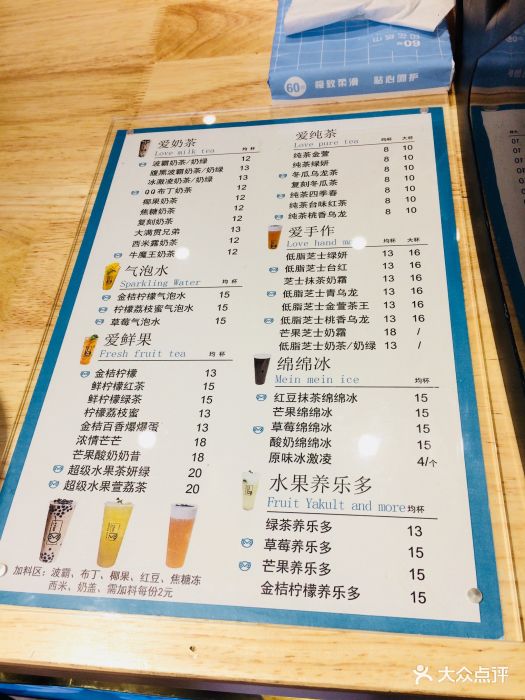 60
60
极致柔滑 贴心呵护
爱奶茶
Love milk tea 均杯
波霸奶茶/奶绿 12
腹黑波霸奶茶/奶绿 13
冰激凌奶茶/奶绿 13
QQ布丁奶茶 12
椰果奶茶 12
焦糖奶茶 12
复刻奶茶 12
大满贯兄弟 13
西米露奶茶 12
牛魔王奶茶 12
气泡水
Sparkling Water 均杯
金桔柠檬气泡水 15
柠檬荔枝蜜气泡水 15
草莓气泡水 15
爱鲜果
Fresh fruit tea 均杯
金桔柠檬 13
鲜柠檬红茶 15
鲜柠檬绿茶 15
柠檬荔枝蜜 13
金桔百香爆爆蛋 13
浓情芒芒 18
芒果酸奶奶昔 18
超级水果茶妍绿 20
超级水果萱荔茶 20
加料区：波霸、布丁、椰果、红豆、焦糖冻
西米、奶盖、需加料每份2元
爱纯茶
Love pure tea 均杯 大杯
纯茶金萱 8 10
纯茶绿妍 8 10
冬瓜乌龙茶 8 10
复刻冬瓜茶 8 10
纯茶四季春 8 10
纯茶台味红茶 8 10
纯茶桃香乌龙 8 10
爱手作
Love hand ma 均杯 大杯
低脂芝士绿妍 13 16
低脂芝士台红 13 16
芝士抹茶奶霜 13 16
低脂芝士青乌龙 13 16
低脂芝士金萱茶王 13 16
低脂芝士桃香乌龙 13 16
芒果芝士奶霜 18 /
低脂芝士奶茶/奶绿 13 /
绵绵冰
Mein mein ice 均杯
红豆抹茶绵绵冰 15
芒果绵绵冰 15
草莓绵绵冰 15
酸奶绵绵冰 15
原味冰激凌 4/个
水果养乐多
Fruit Yakult and more 均杯
绿茶养乐多 13
草莓养乐多 15
芒果养乐多 15
金桔柠檬养乐多 15
大众点评